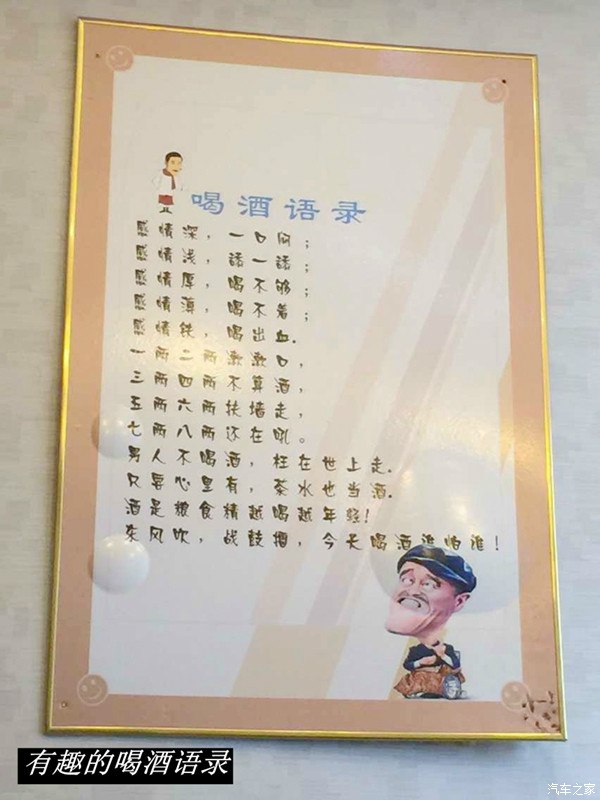 喝酒语录
感情深，一口闷；
感情浅，舔一舔；
感情厚，喝不够；
感情薄，喝不着；
感情铁，喝出血.
一两二两漱漱口，
三两四两不算酒，
五两六两扶墙走，
七两八两还在吼。
男人不喝酒，枉在世上走.
只要心里有，茶水也当酒.
酒是粮食精越喝越年轻！
东风吹，战鼓擂，今天喝酒谁怕谁！
有趣的喝酒语录
汽车之家